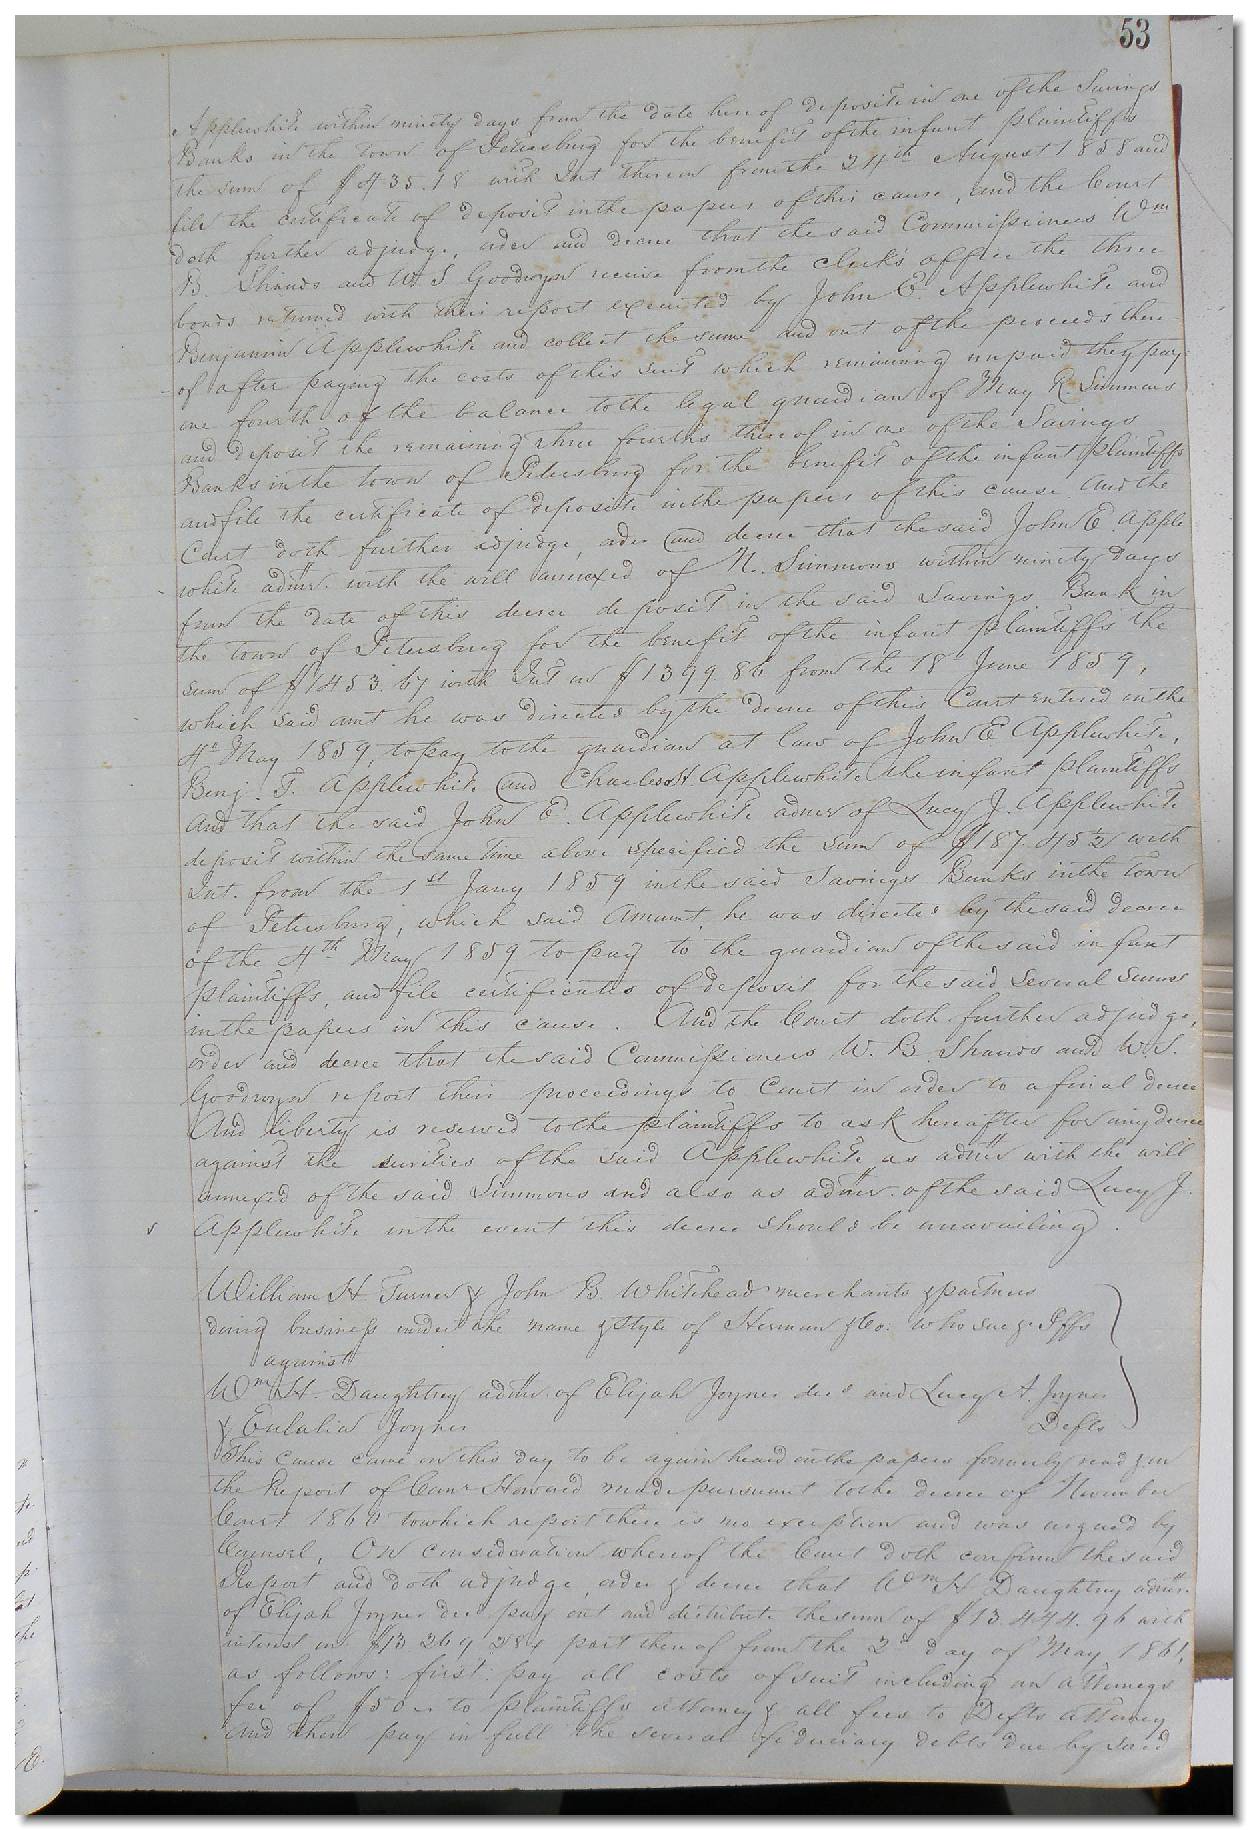 53
Applewhite within ninety days from the date hereof deposite in one of the Savings
Banks in the town of Petersburg for the benefit of the infant plaintiffs
the sum of $435.18 with Int thereon from the 24th August 1858 and
file the certificate of deposit in the papers of this cause, and the Court
doth further adjudge, order and decree that the said Commissioners Wm
B. Shands and W. S Goodwyn receive from the clerk's office the three
bonds returned with their report executed by John E. Applewhite and
Benjamin Applewhite and collect the same and out of the proceeds there
of after paying the costs of this suit which remaining unpaid they pay
one fourth of the balance to the legal guardian of May R. Simmons
and deposit the remaining three fourths thereof in one of the Savings
Banks in the town of Petersburg for the benefit of the infant plaintiffs
and file the certificate of deposite in the papers of this cause And the
Court doth further adjudge, order and decree that the said John E Apple
white admr. with the will annexed of N. Simmons within ninety days
from the date of this decree deposit in the said Savings Bank in
the town of Petersburg for the benefit of the infant plaintiffs the
sum of $1453.67 with Int on $1399.86 from the 18th June 1859,
which said amt he was directed by the decree of this Court entered on the
4th May 1859, to pay to the guardian at law of John E Applewhite,
Benj. F. Applewhite and Charles H Applewhite the infant plaintiffs
And that the said John E. Applewhite admr of Lucy J. Applewhite
deposit within the same time above specified the sum of $187.45½ with
Int. from the 1st Jany 1859 in the said Savings Banks in the town
of Petersburg, which said Amount, he was directed by the said decree
of the 4th May 1859 to pay to the guardian of the said infant
plaintiffs, and file certificates of deposit for the said several sums
in the papers in this cause. And the Court doth further adjudge,
order and decree that the said Commissioners W. B Shands and W. S.
Goodwyn report their proceedings to Court in order to a final decree
And liberty is reserved to the plaintiffs to ask hereafter for any decree
against the surities of the said Applewhite as admr with the will
annexed of the said Simmons and also as admr. of the said Lucy J.
Applewhite in the event this decree should be unavailing.
William H Turner & John B. Whitehead merchants & partners
doing business under the name & style of Herman & Co. who sue &c Plffs
against
Wm H. Daughtrey admr. of Elijah Joyner decd and Lucy A. Joyner
& Eulalia Joyner Defts
This cause came on this day to be again heard on the papers formerly read & on
the Report of Comr Howard made pursuant to the decree of November
Court 1860 to which report there is no exception and was argued by
Counsel, On consideration whereof the Court doth confirm the said
Report and doth adjudge order & decree that Wm H Daughtrey admr.
of Elijah Joyner decd pay out and distribute the sum of $13.444.96 with
interest on $13 269 part thereof from the 2d day of May 1861,
as follows: first: pay all costs of suit including an attorneys
fee of to plaintiffs attorney & all fees to Defts attorney
And then pay in full the several fiduciary debts due by said